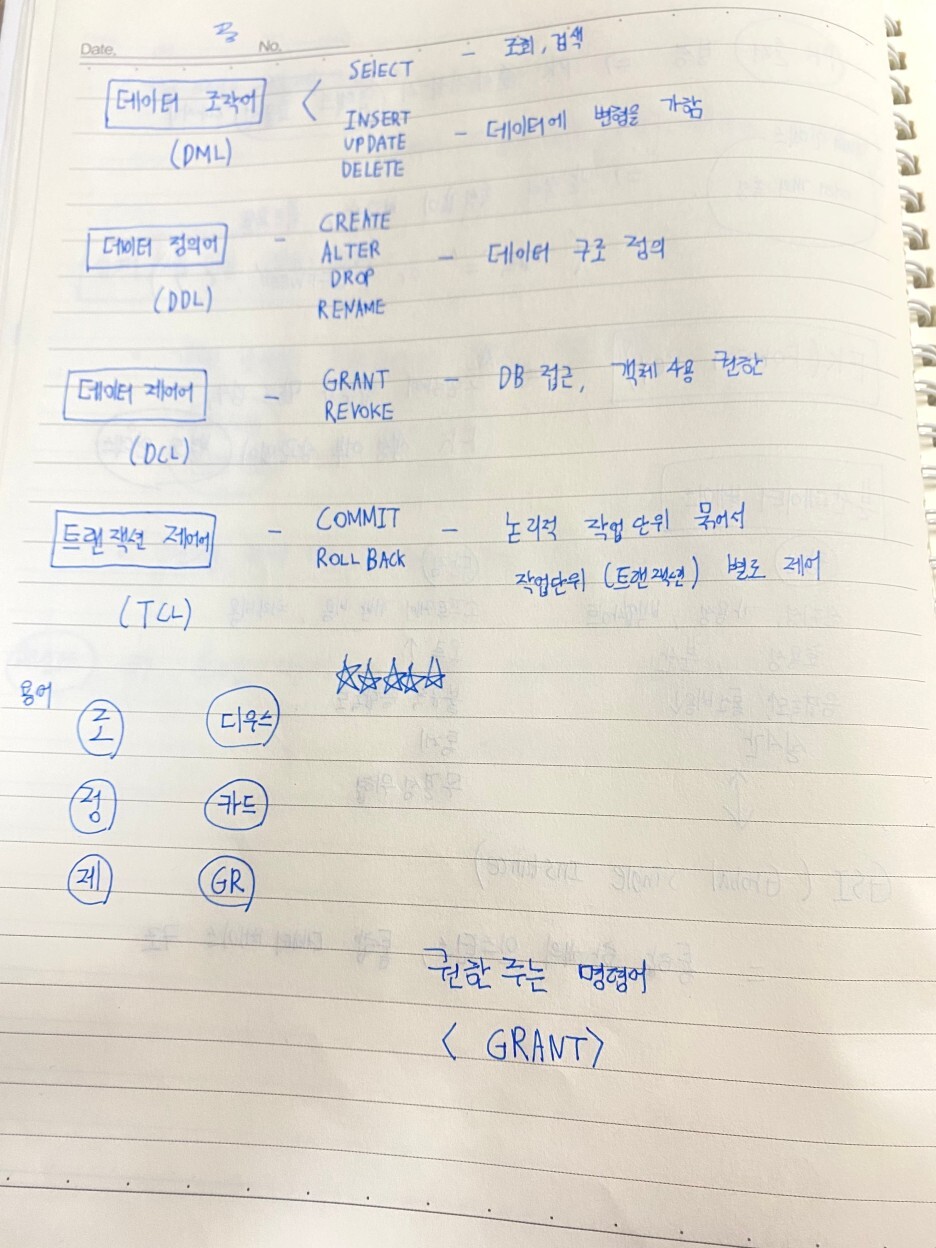 Date. No.
데이터 조작어 < SELECT - 조회, 검색
(DML) INSERT
UPDATE - 데이터에 변형을 가함
DELETE
데이터 정의어 - CREATE
(DDL) ALTER - 데이터 구조 정의
DROP
RENAME
데이터 제어어 - GRANT - DB 접근, 객체 사용 권한
(DCL) REVOKE
트랜잭션 제어어 - COMMIT - 논리적 작업단위 묶어서
(TCL) ROLLBACK 작업단위 (트랜잭션) 별로 제어
☆☆☆☆☆
용어
조 디우스
정 카드
제 GR
권한 주는 명령어
< GRANT>